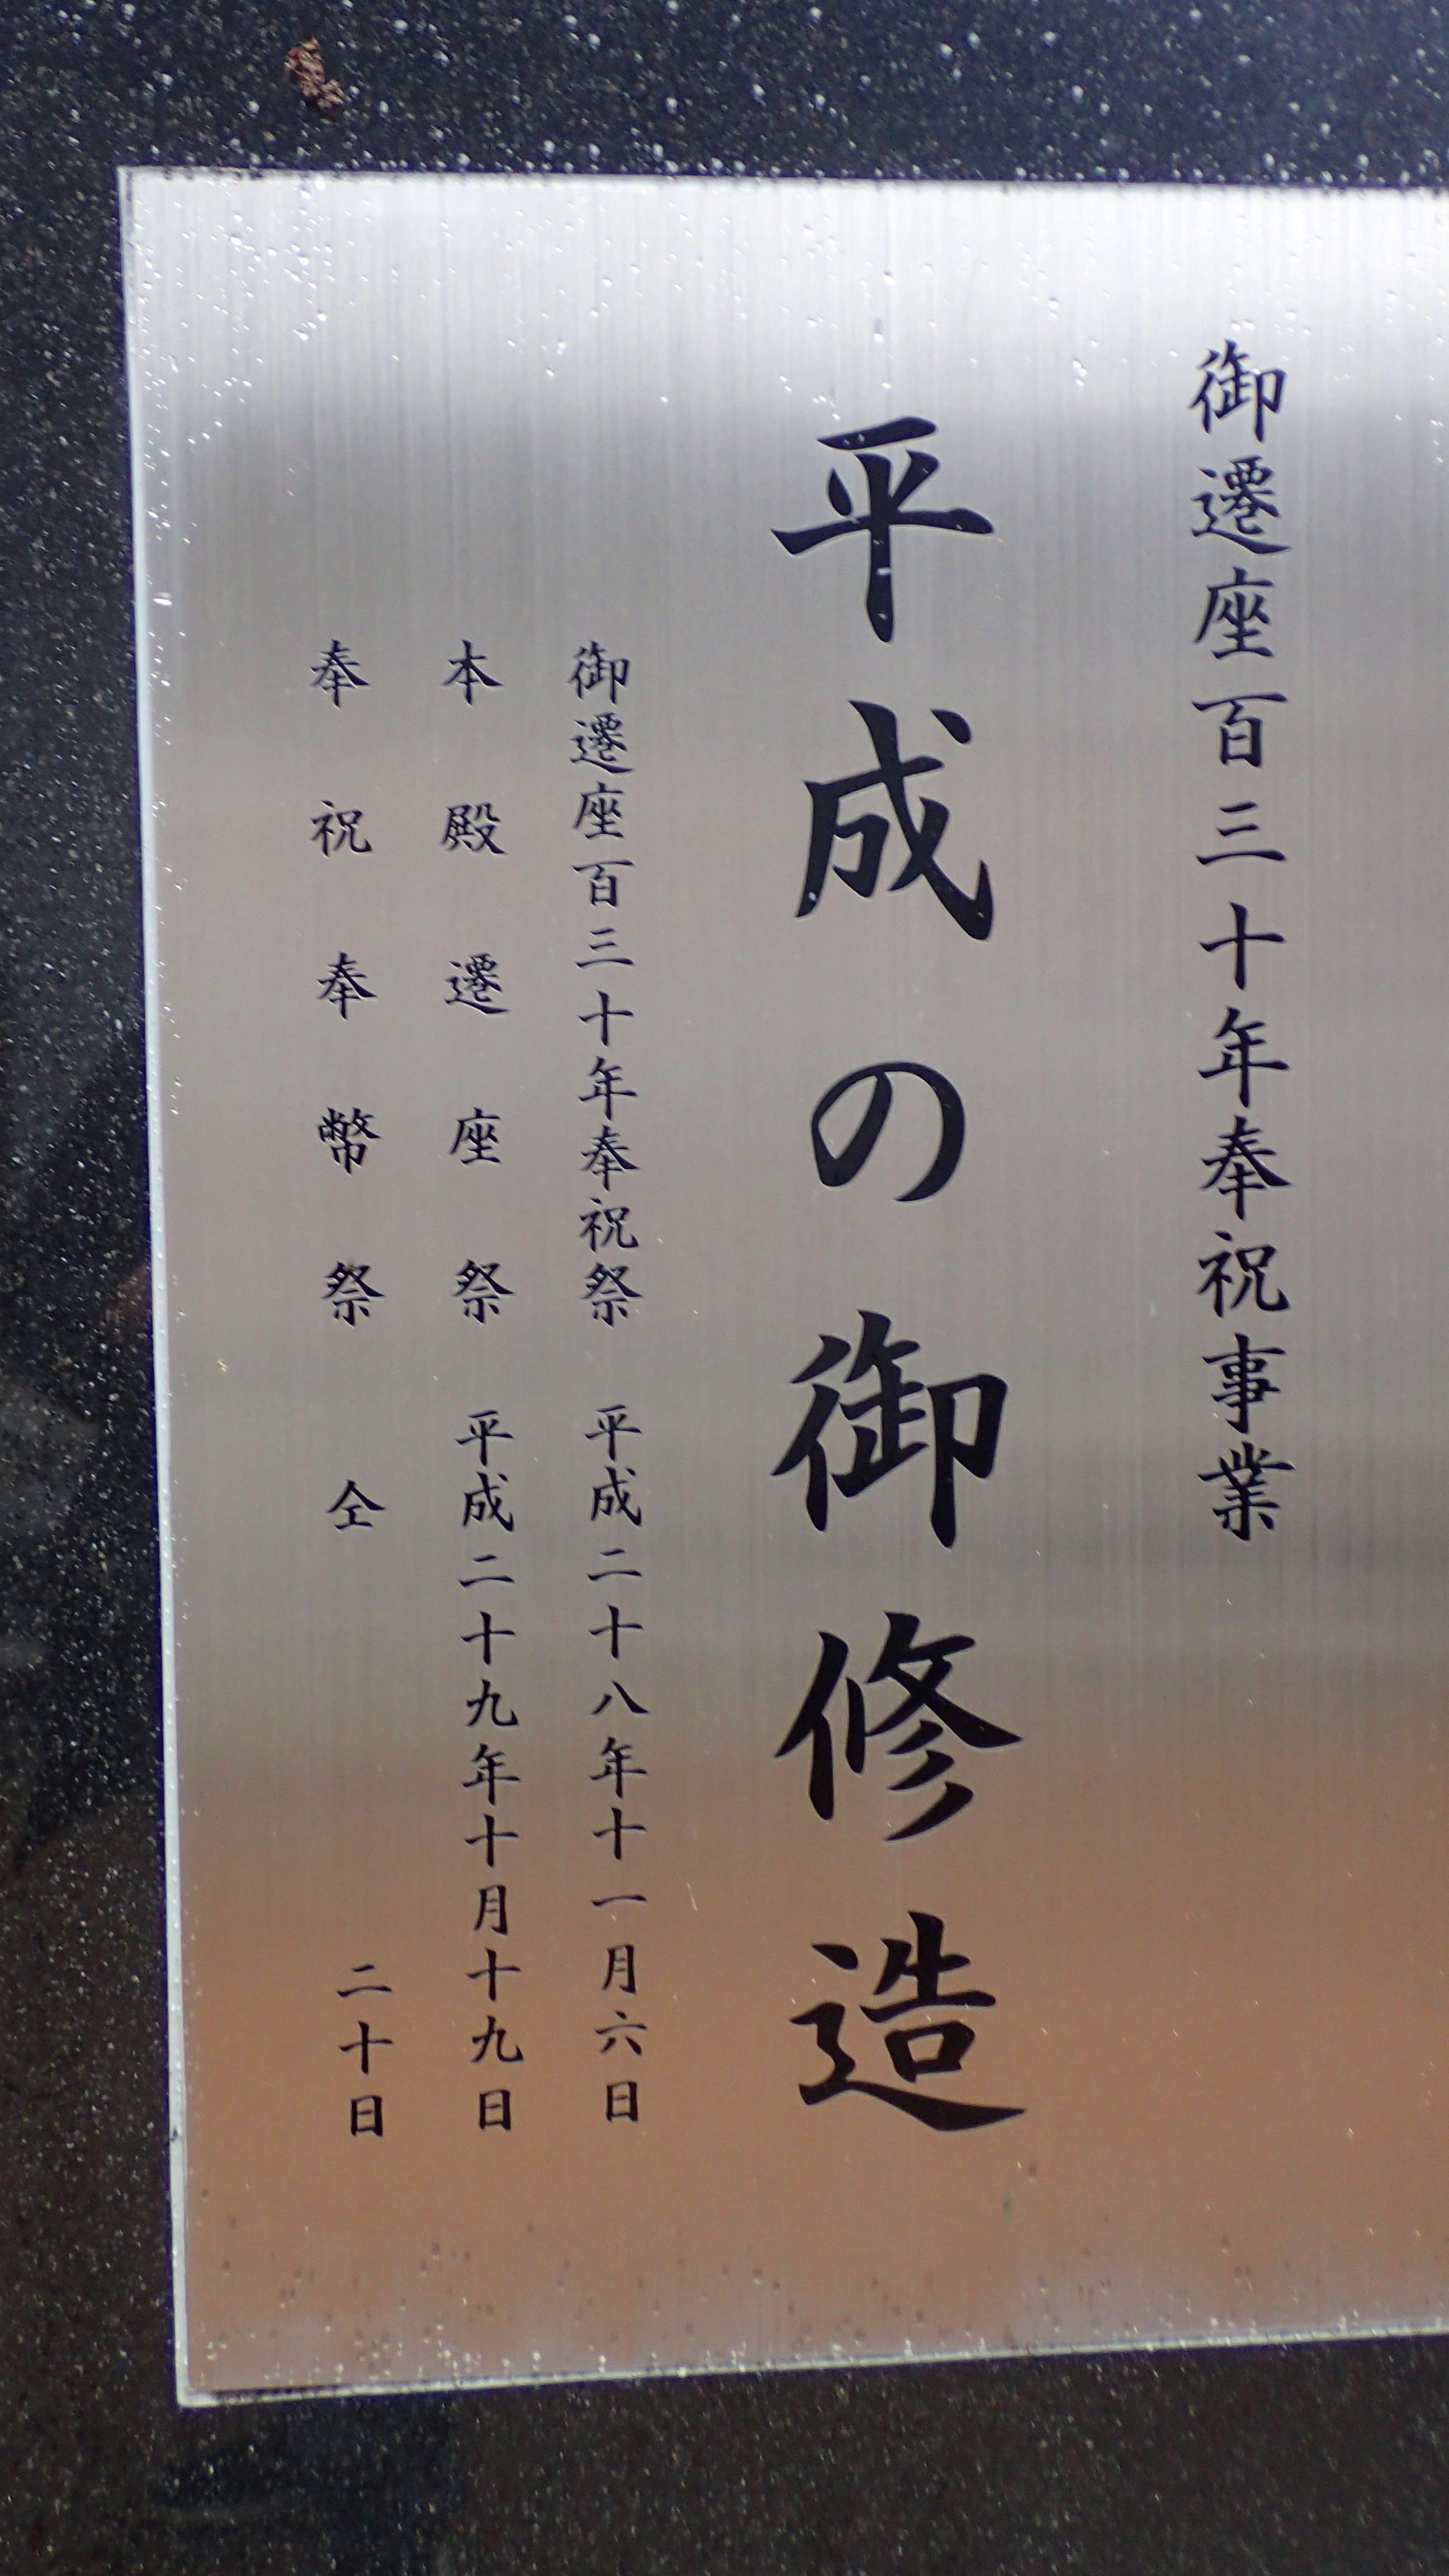 御遷座百三十年奉祝事業
平成の御修造
御遷座百三十年奉祝祭 平成二十八年十一月六日
本殿遷座祭 平成二十九年十月十九日
奉祝奉幣祭 仝 二十日